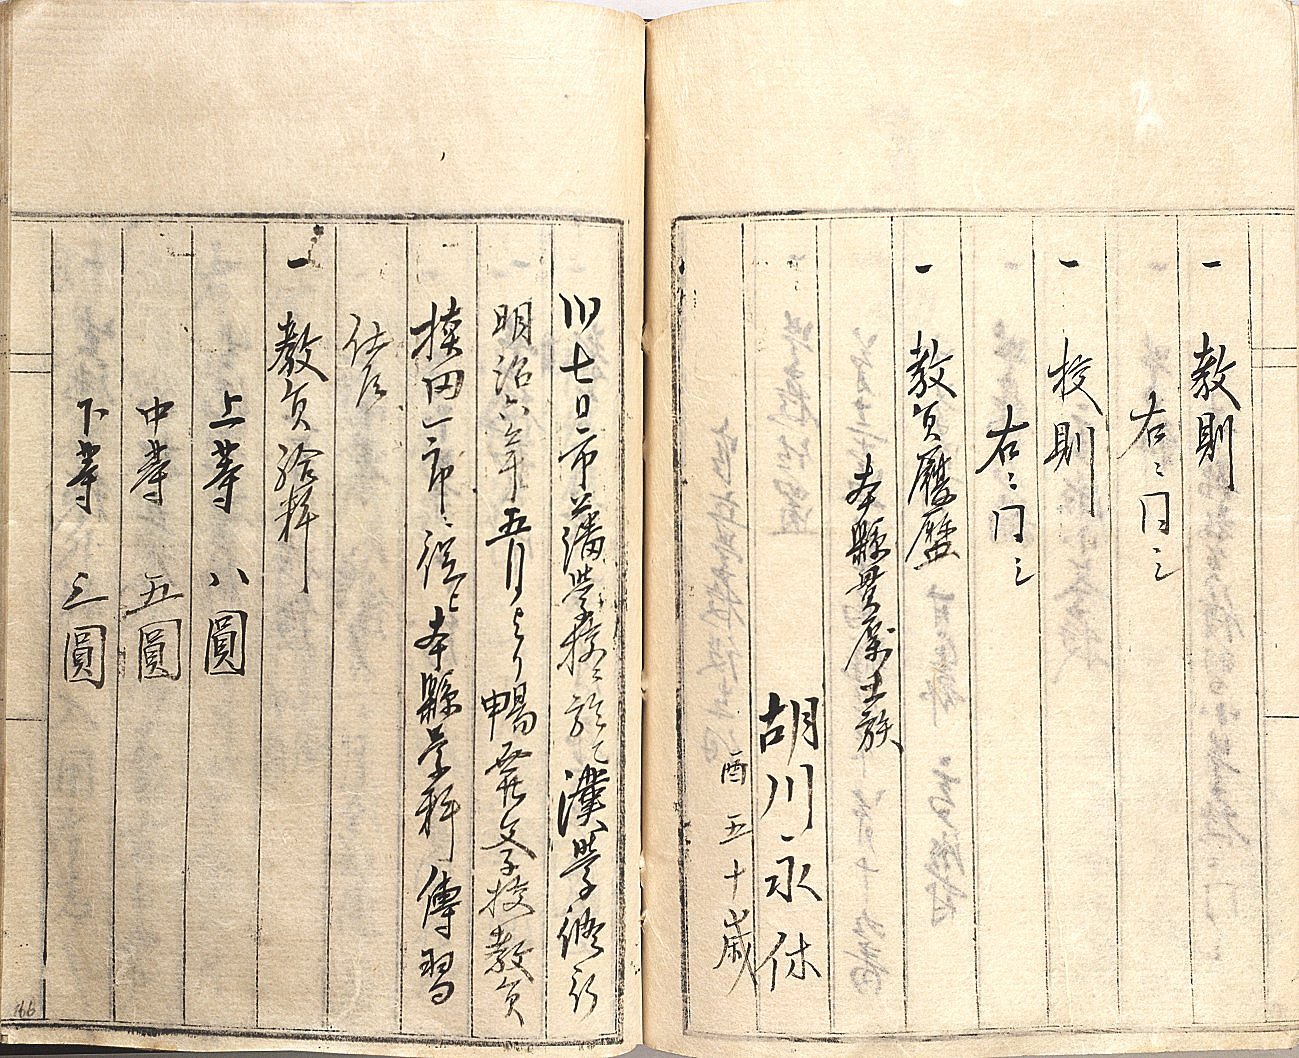 一 教則
右ニ同シ
一 校則
右ニ同シ
一 教員履歴
本縣貫属士族
胡川永休
酉五十歳
七日市藩学校ニ於テ漢学修行
明治六年五月ヨリ暢発学校教員
横田一郎ニ従ヒ本縣学科傳習
仕候
一 教員給料
上等 八圓
中等 五圓
下等 三圓
166